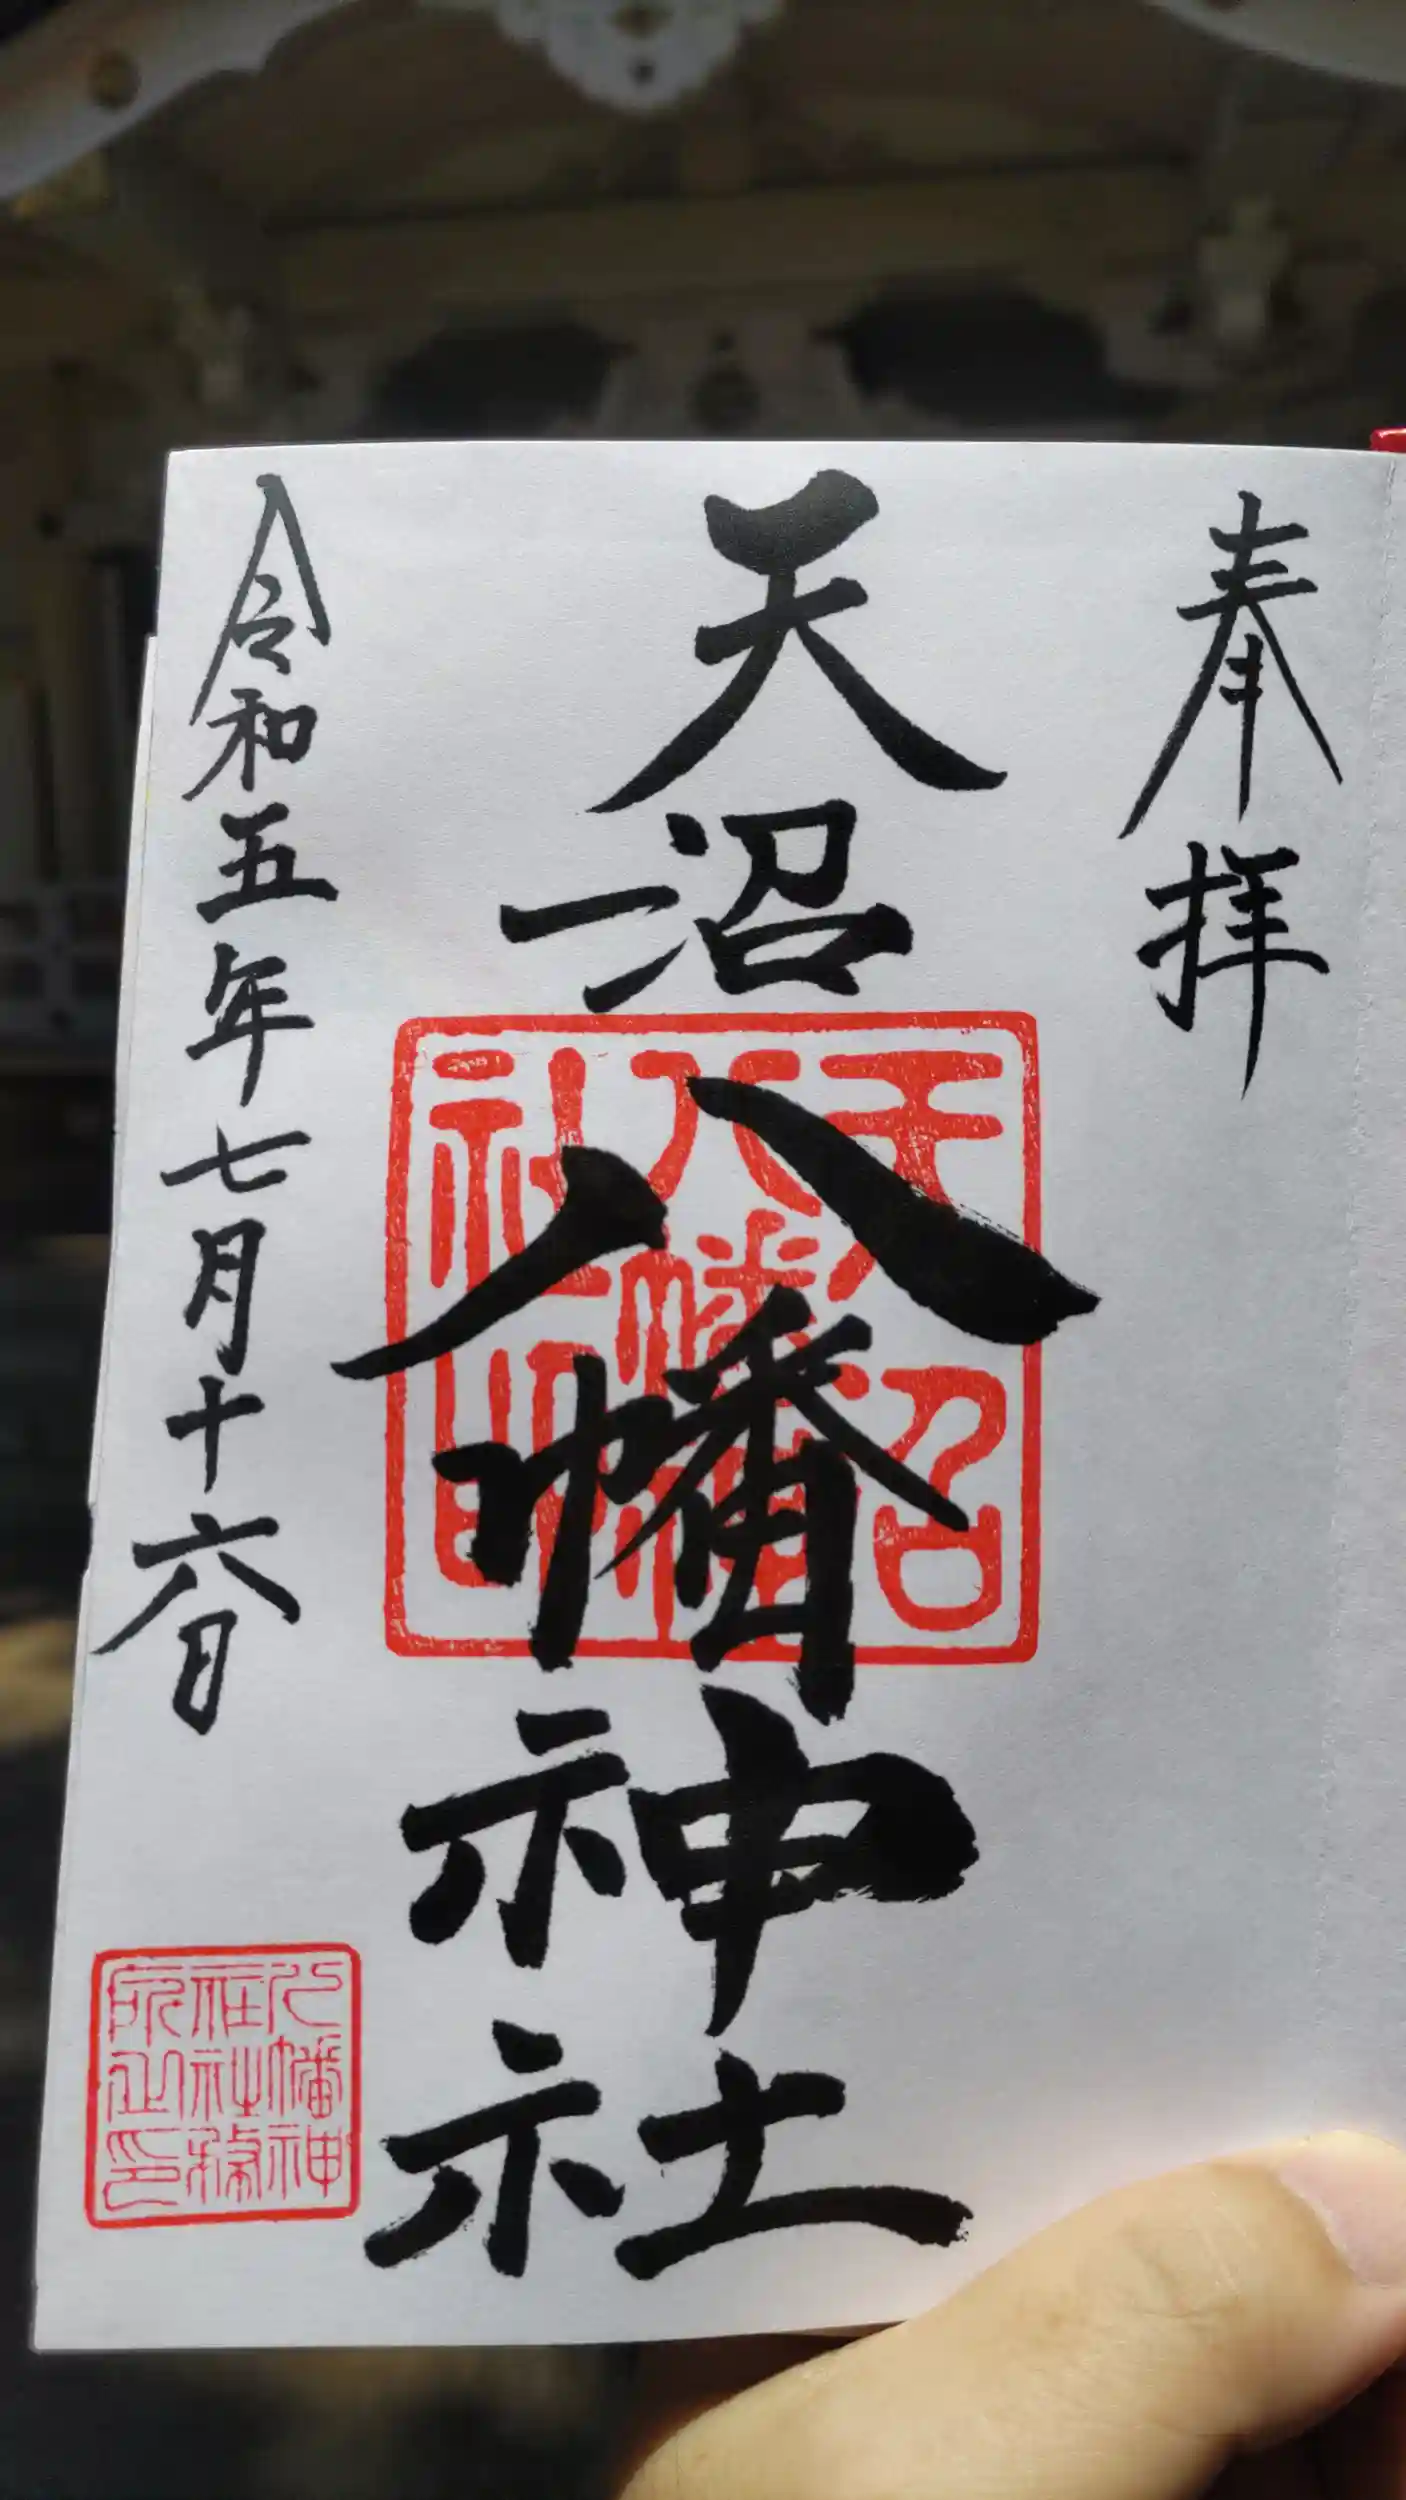 奉拝
天沼八幡神社
天沼
八幡神
社印
令和五年七月十六日
八幡神
社社務
所之印